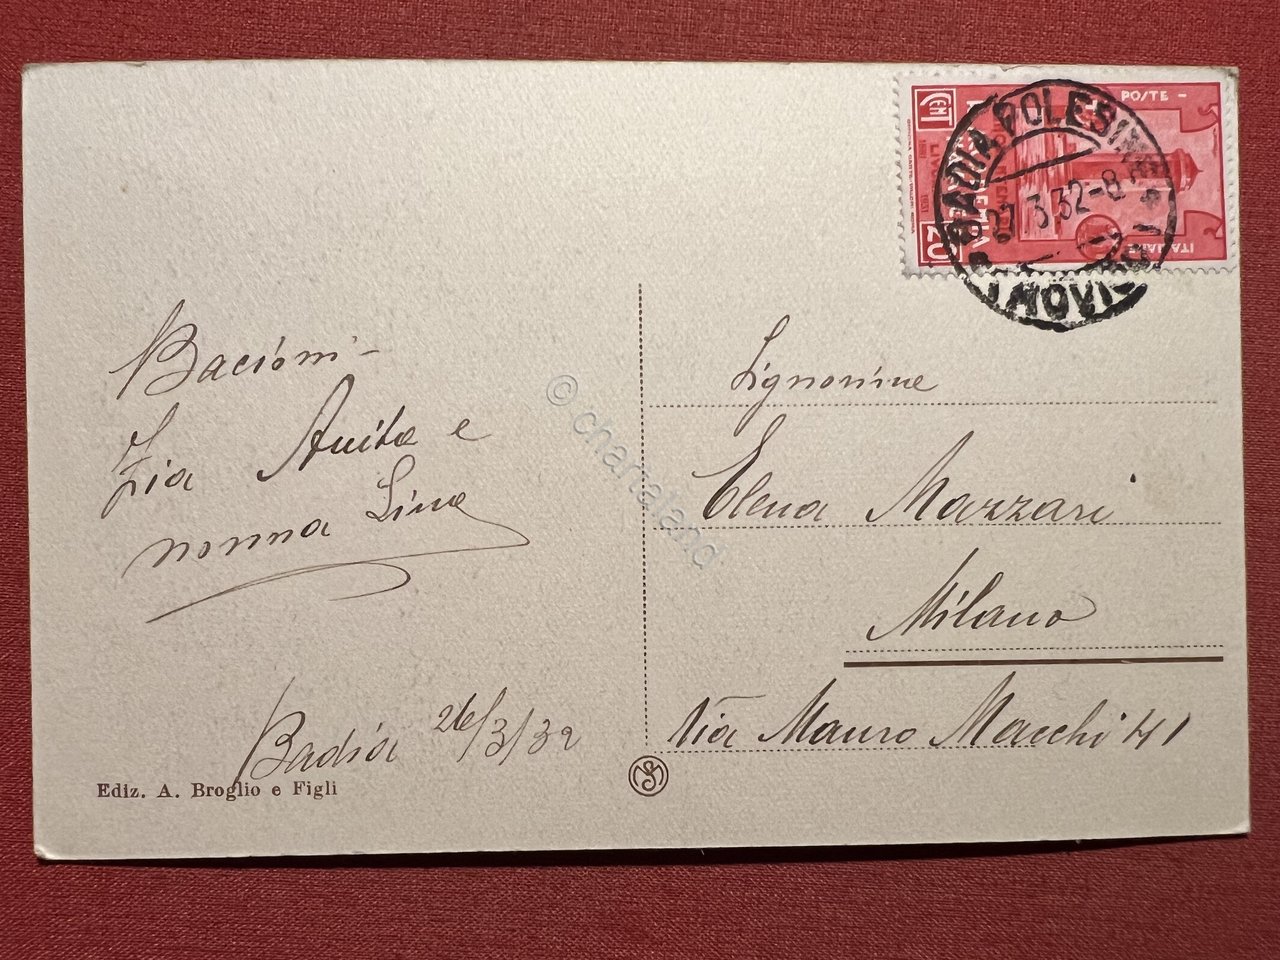 Bacioni -
Zia Anita e
nonna Lina
Badia 26/3/32
Ediz. A. Broglio e Figli
© chartaland
POSTE
ITALIANE
CENT
20
BADIA POLESINE
27.3.32-8
(ROVIGO)
Signorina
Elena Mazzari
Milano
Via Mauro Macchi 41